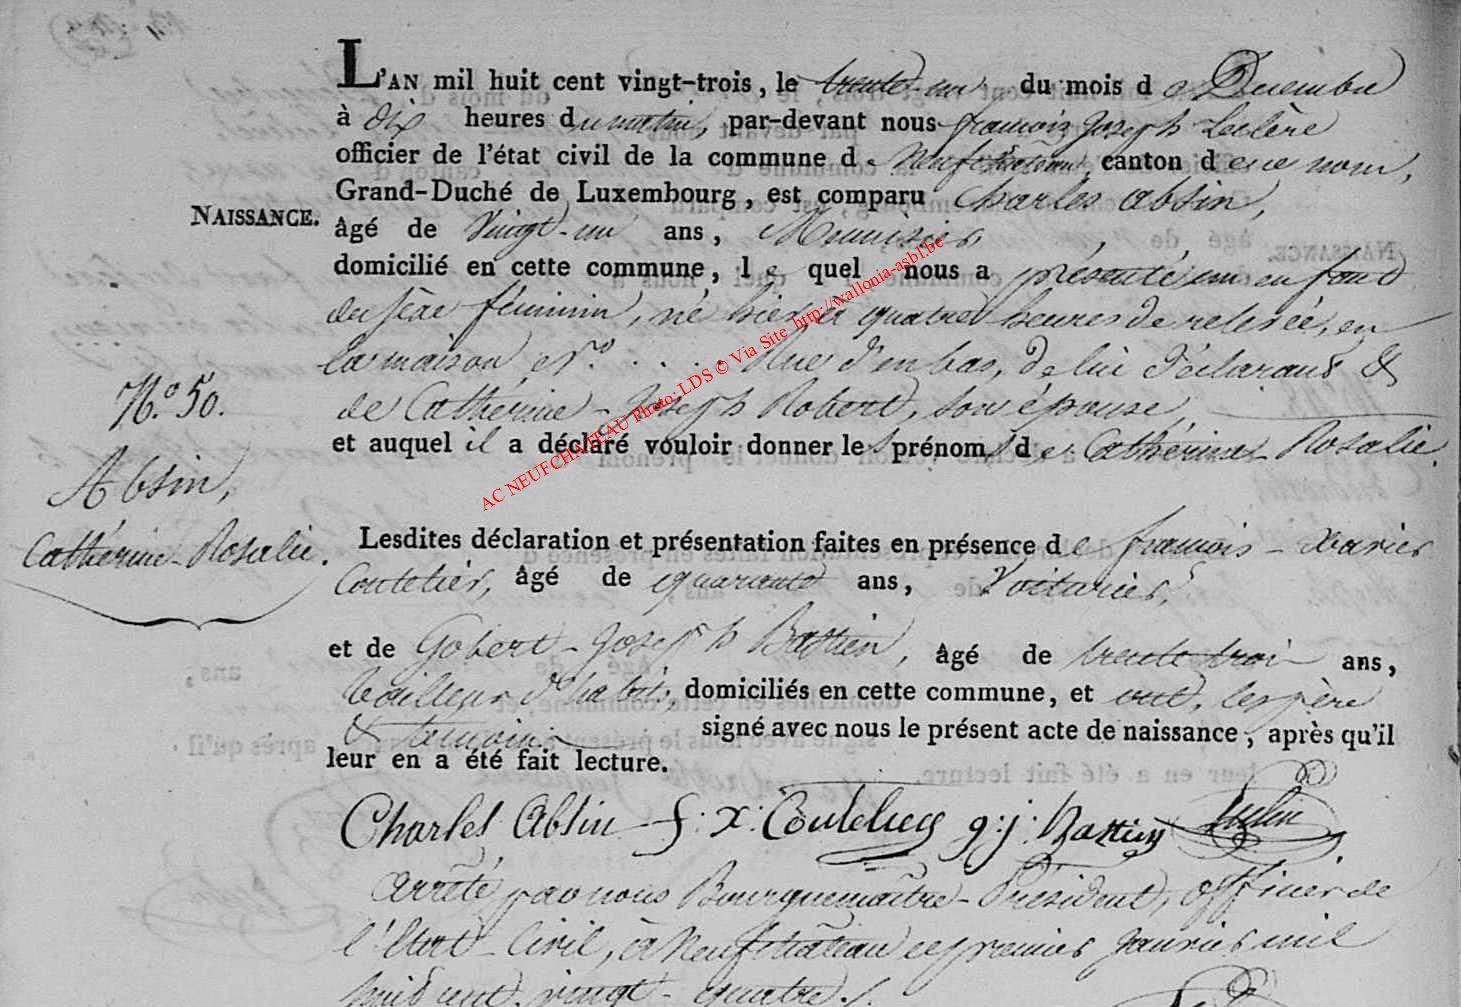 L'AN mil huit cent vingt-trois, le trente-un du mois de Decembre
à dix heures du matin, par-devant nous françois Joseph Leclère
officier de l'état civil de la commune de Neufchateau, canton de ce nom,
Grand-Duché de Luxembourg, est comparu Charles Absin,
NAISSANCE.
âgé de Vingt-un ans, Menuisier,
domicilié en cette commune, lequel nous a présenté un enfant
du sexe féminin, né hier à quatre heures de relevée, en
la maison, N.º ..... Rue d'en bas, de lui déclarant &
de Cathérine-Joseph Robert, son épouse,
et auquel il a déclaré vouloir donner les prénoms de Cathérine-Rosalie.
N.º 50.
Absin,
Cathérine-Rosalie.
Lesdites déclaration et présentation faites en présence de françois-xavier
Coutelier, âgé de quarante ans, Voiturier,
et de Gobert-Joseph Bastien, âgé de trente trois ans,
tailleur d'habits, domiciliés en cette commune, et ont, les père
& temoins signé avec nous le présent acte de naissance, après qu'il
leur en a été fait lecture.
Charles Absin f: x: Coutelier g: j: Bastien
Arrêté par nous Bourguemaître-Président, officier de
l'Etat-Civil, à Neufchâteau ce premier Janvier mil
huit cent vingt-quatre./.
AC NEUFCHATEAU Photo: LDS © Via Site http://wallonia-asbl.be